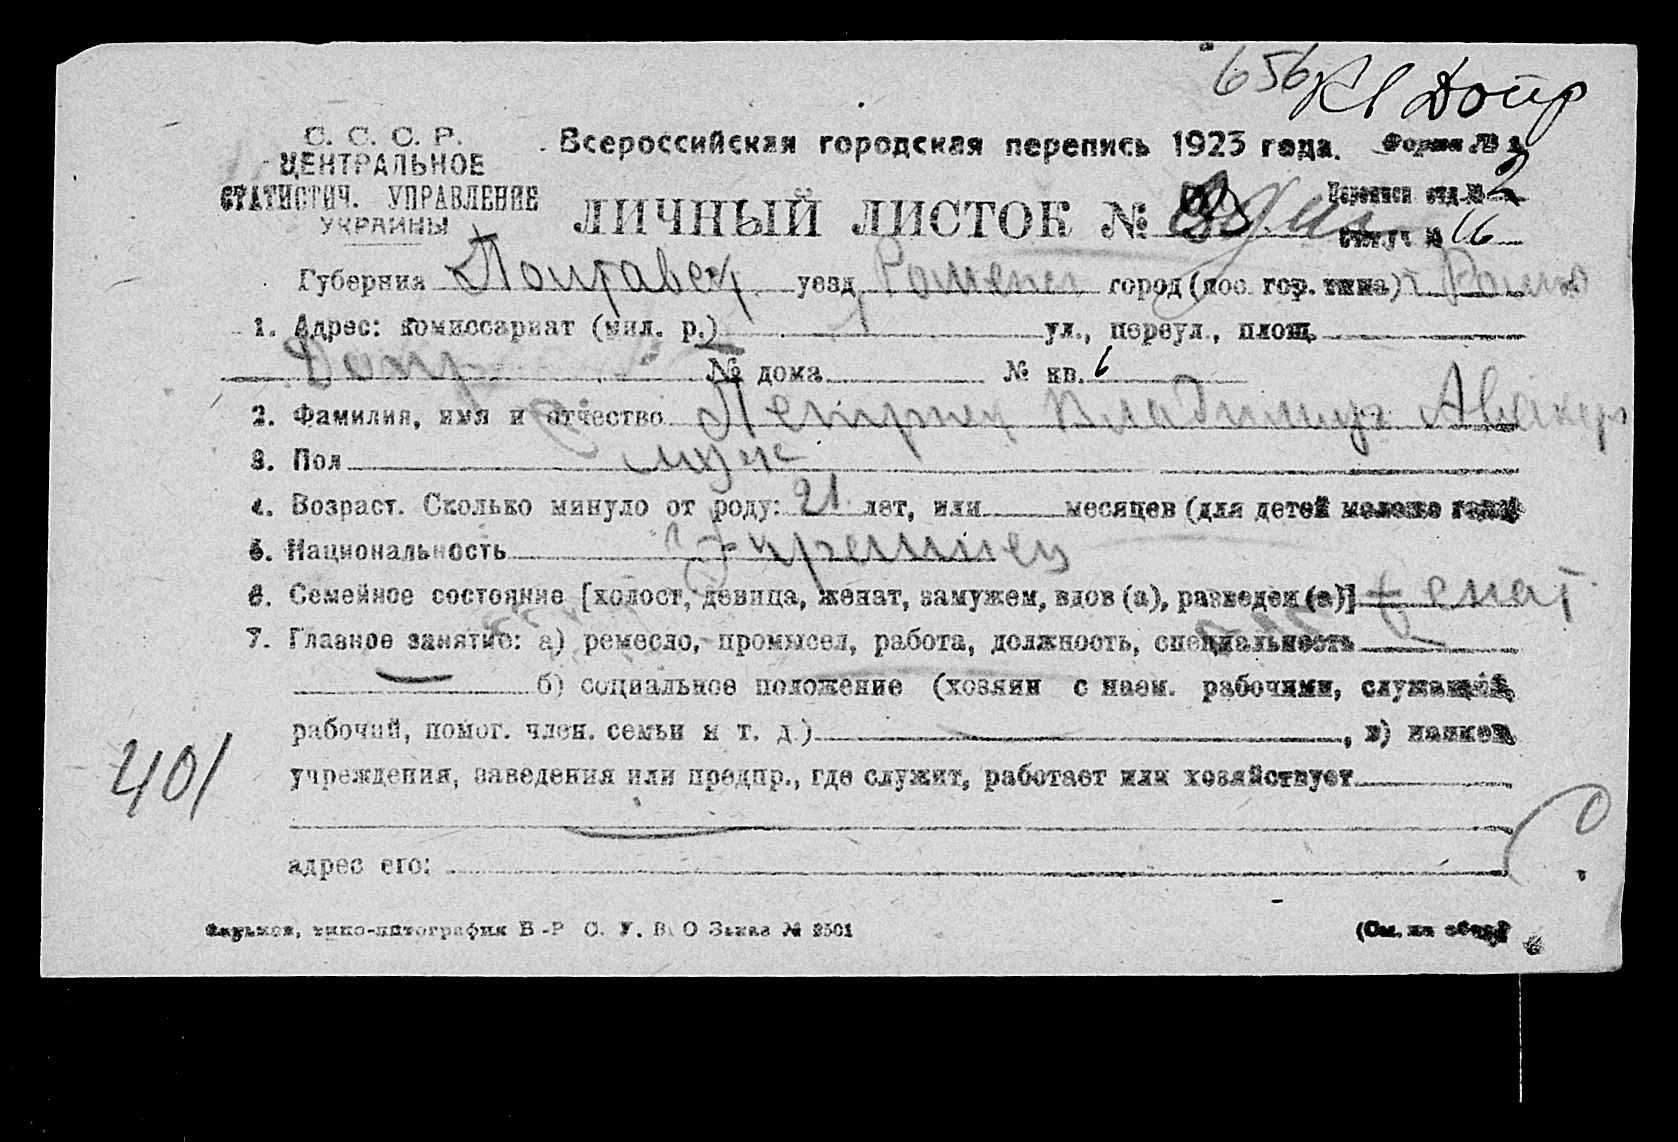 656 Кв Допр
С. С. С. Р.
ЦЕНТРАЛЬНОЕ
СТАТИСТИЧ. УПРАВЛЕНИЕ
УКРАИНЫ
Всероссийская городская перепись 1923 года. Форма № 1
ЛИЧНЫЙ ЛИСТОК №
Переписн отд № 2
Счетч № 16
Губерния Полтавск уезд Роменск город (пос. гор. типа) г Ромн
1. Адрес: комиссариат (мил. р.) 1 ул., переул., площ.
Допр № дома № кв. 6
2. Фамилия, имя и отчество Владимир
3. Пол муж
4. Возраст. Сколько минуло от роду: 21 лет, или месяцев (для детей моложе года)
5. Национальность
6. Семейное состояние [холост, девица, женат, замужем, вдов (а), разведен (а)] женат
7. Главное занятие: а) ремесло, промысел, работа, должность, специальность
б) социальное положение (хозяин с наем. рабочими, служащий,
рабочий, помог. член. семьи и т. д.) , в) наимен
учреждения, заведения или предпр., где служит, работает или хозяйствует
401
адрес его:
Харьков, типо-литография В-Р С. У. В. О Заказ № 2501
(См. на обор.)